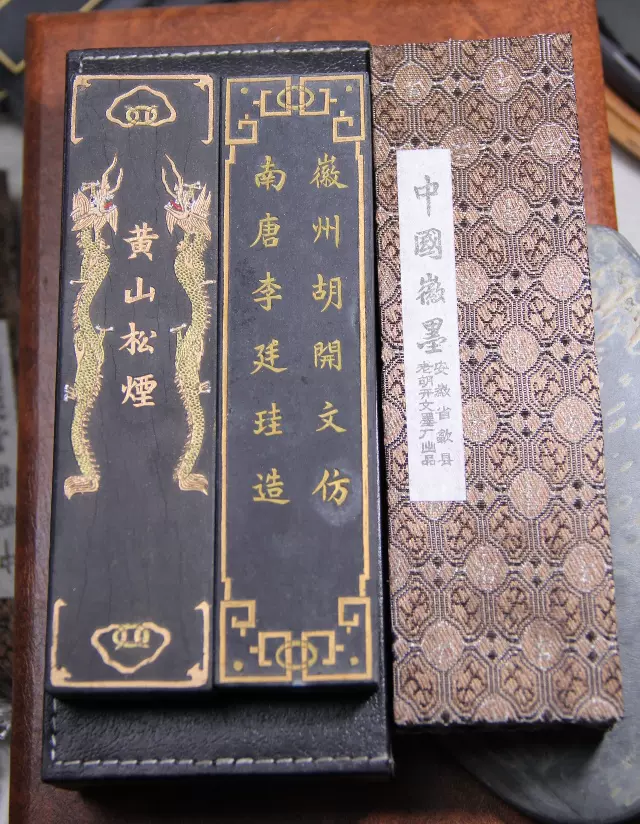 黄山松煙
徽州胡開文仿
南唐李廷珪造
中國徽墨
安徽省歙县
老胡开文墨厂出品